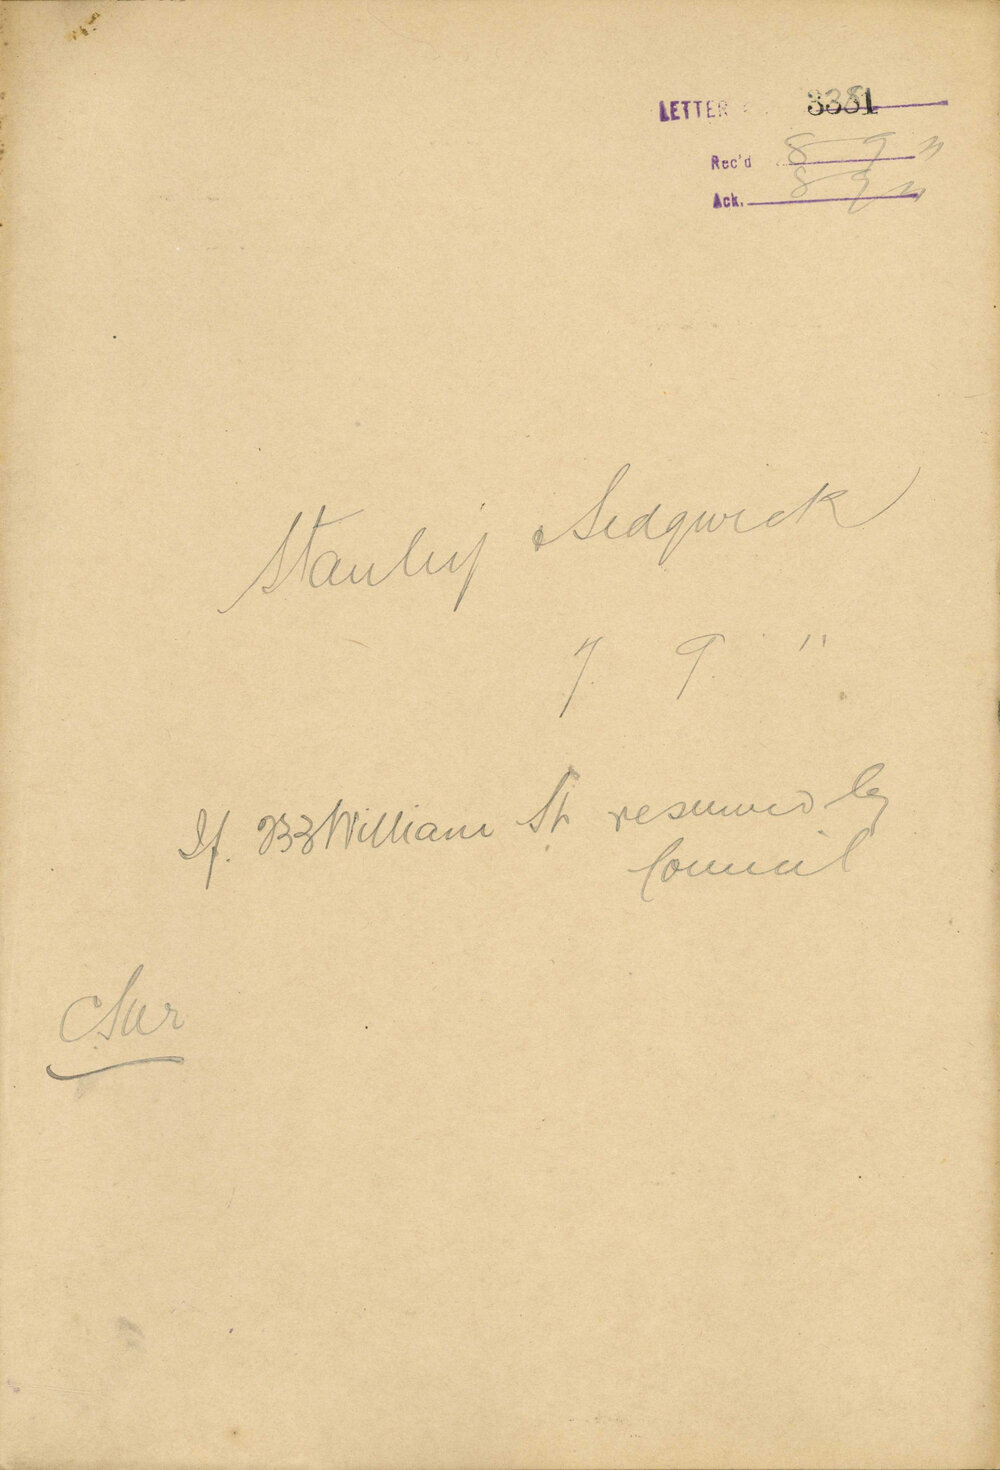 LETTER 3381
Rec'd 8 9 11
Ack. 8 9 11
Stanley Sedgwick
7. 9. 11
If 233 William St resumed by
Council
C. Sur